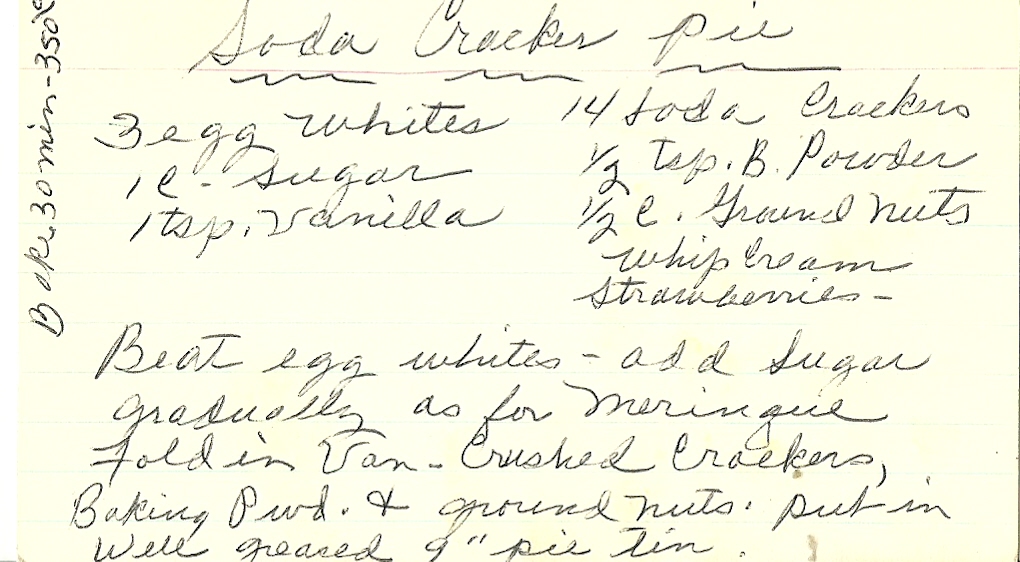 Soda Cracker Pie
3 egg whites
1 C. Sugar
1 tsp. Vanilla
14 Soda Crackers
1/2 tsp. B. Powder
1/2 C. Ground Nuts
Whip Cream
Strawberries -
Beat egg whites - add Sugar
gradually as for Meringue
Fold in Van - Crushed Crackers,
Baking Pwd. & ground nuts. put in
Well greased 9" pie tin.
Bake 30 min - 350°